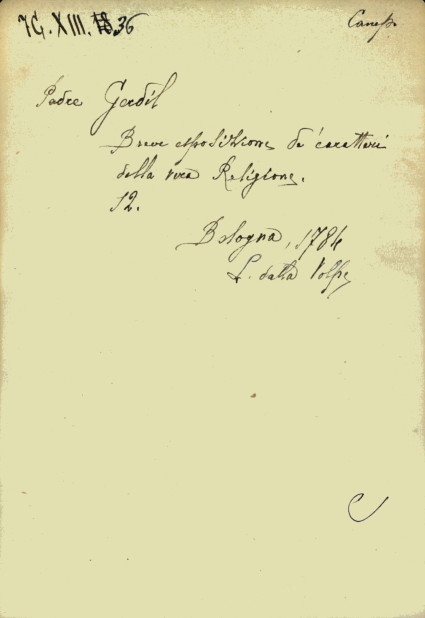 7G. XIII. 36
Canep.
Padre Gerdil
Breve esposizione de' caratteri
della vera Religione.
12.
Bologna, 1784
L. dalla Volpe